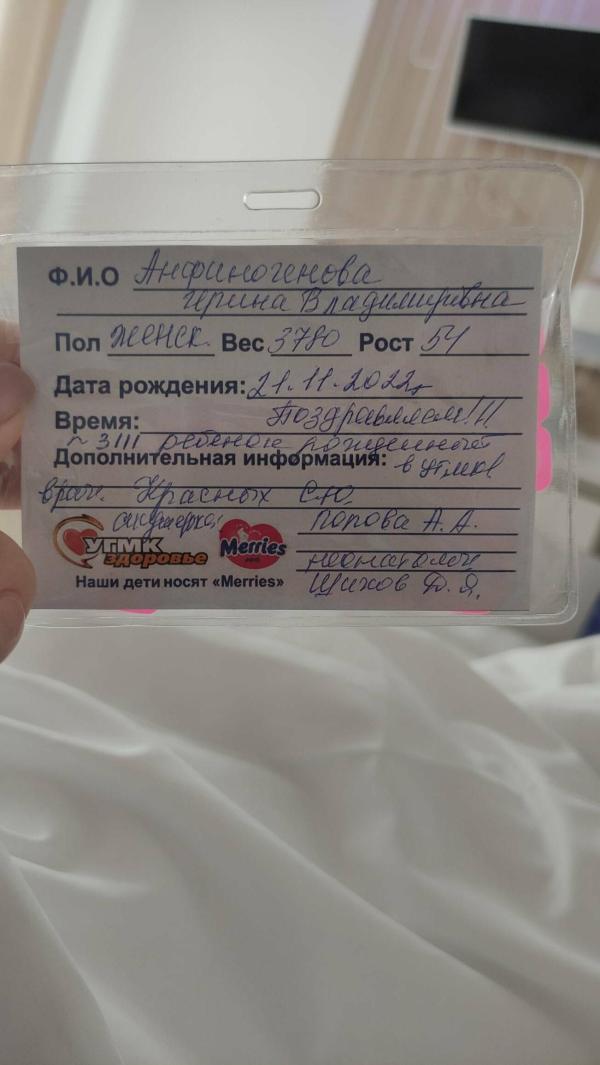 Ф.И.О Анфиногенова
Ирина Владимировна
Пол женск. Вес 3780 Рост 54
Дата рождения: 21.11.2022г
Время: Поздравляем!!!
~ 3111 ребенок рожденный
Дополнительная информация: в УГМК
врач. Красных С.Ю.
акушерка: Попова А.А.
УГМК здоровье
Merries
неонатолог
Наши дети носят «Merries» Шихов Д.Я.